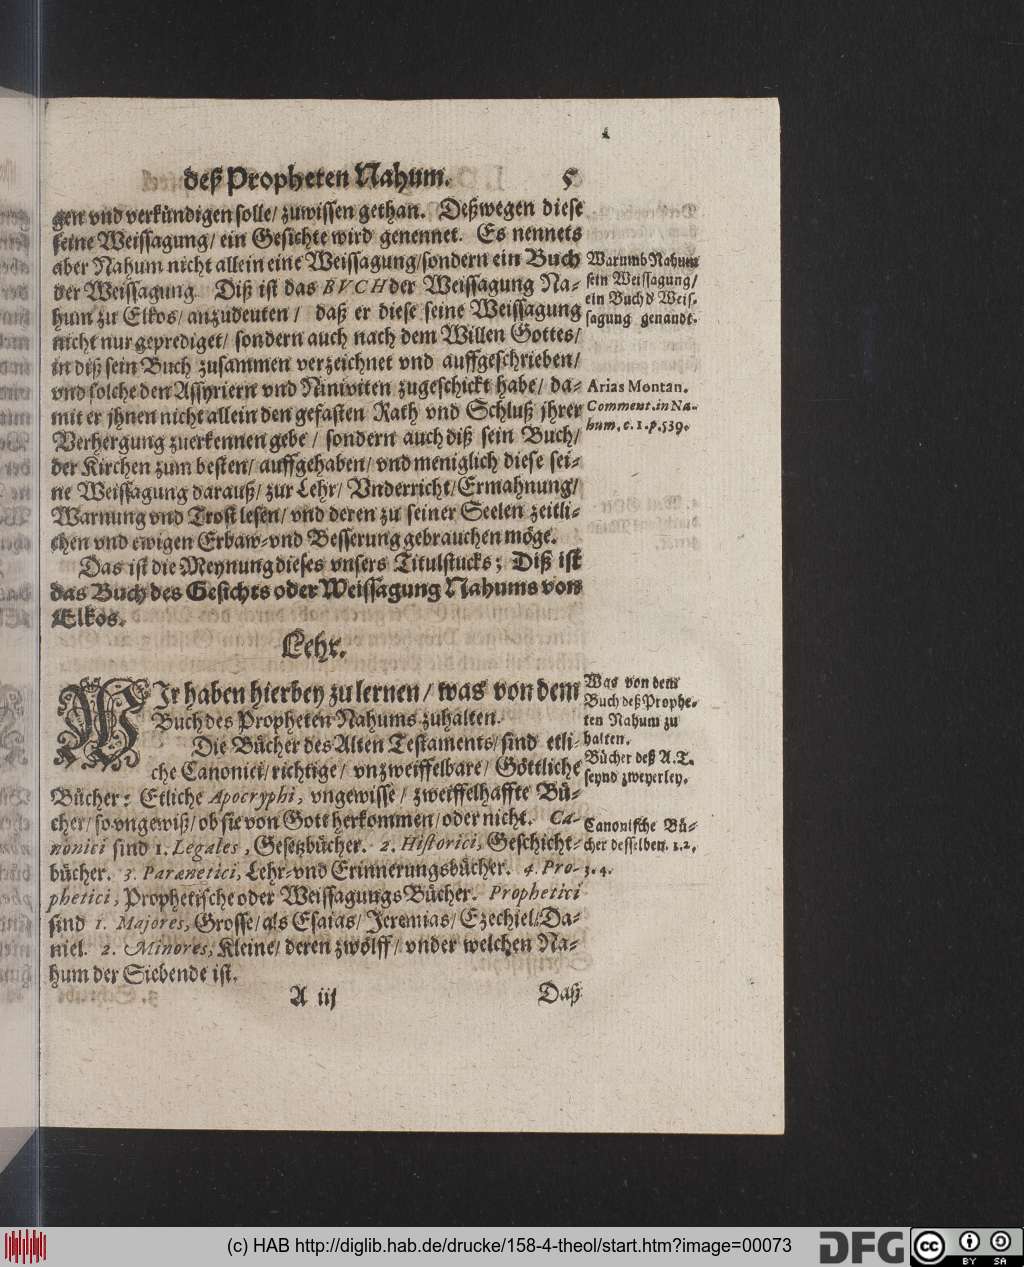 deß Propheten Nahum. 5
gen vnd verkündigen solle/ zuwissen gethan. Deßwegen diese
seine Weissagung/ ein Gesichte wird genennet. Es nennets
aber Nahum nicht allein eine Weissagung/ sondern ein Buch
der Weissagung. Diß ist das BVCH der Weissagung Na-
hum zu Elkos/ anzudeuten/ daß er diese seine Weissagung
nicht nur geprediget/ sondern auch nach dem Willen Gottes/
in diß sein Buch zusammen verzeichnet vnd auffgeschrieben/
vnd solche den Assyriern vnd Niniviten zugeschickt habe/ da-
mit er jhnen nicht allein den gefasten Rath vnd Schluß jhrer
Verhergung zuerkennen gebe/ sondern auch diß sein Buch/
der Kirchen zum besten/ auffgehaben/ vnd meniglich diese sei-
ne Weissagung darauß/ zur Lehr/ Vnderricht/ Ermahnung/
Warnung vnd Trost lesen/ vnd deren zu seiner Seelen zeitli-
chen vnd ewigen Erbaw-vnd Besserung gebrauchen möge.
Das ist die Meynung dieses vnsers Titulstucks; Diß ist
das Buch des Gesichts oder Weissagung Nahums von
Elkos.
Warumb Nahum
sein Weissagung/
ein Buch d Weis-
sagung genandt.
Arias Montan.
Comment. in Na-
hum, c. 1. p. 539.
Lehr.
WIr haben hierbey zu lernen/ was von dem
Buch des Propheten Nahums zuhalten.
Die Bücher des Alten Testaments/ sind etli-
che Canonici/ richtige/ vnzweiffelbare/ Göttliche
Bücher: Etliche Apocryphi, vngewisse/ zweiffelhaffte Bü-
cher/ so vngewiß/ ob sie von Gott herkommen/ oder nicht. Ca-
nonici sind 1. Legales, Gesetzbücher. 2. Historici, Geschicht-
bücher. 3. Parænetici, Lehr-vnd Erinnerungsbücher. 4. Pro-
phetici, Prophetische oder Weissagungs Bücher. Prophetici
sind 1. Majores, Grosse/ als Esaias/ Jeremias/ Ezechiel/ Da-
niel. 2. Minores, Kleine/ deren zwölff/ vnder welchen Na-
hum der Siebende ist.
Was von dem
Buch deß Prophe-
ten Nahum zu
halten.
Bücher deß A. T.
seynd zweyerley.
Canonische Bü-
cher desselben. 1. 2.
3. 4.
A iij Daß
(c) HAB http://diglib.hab.de/drucke/158-4-theol/start.htm?image=00073
DFG
cc BY SA